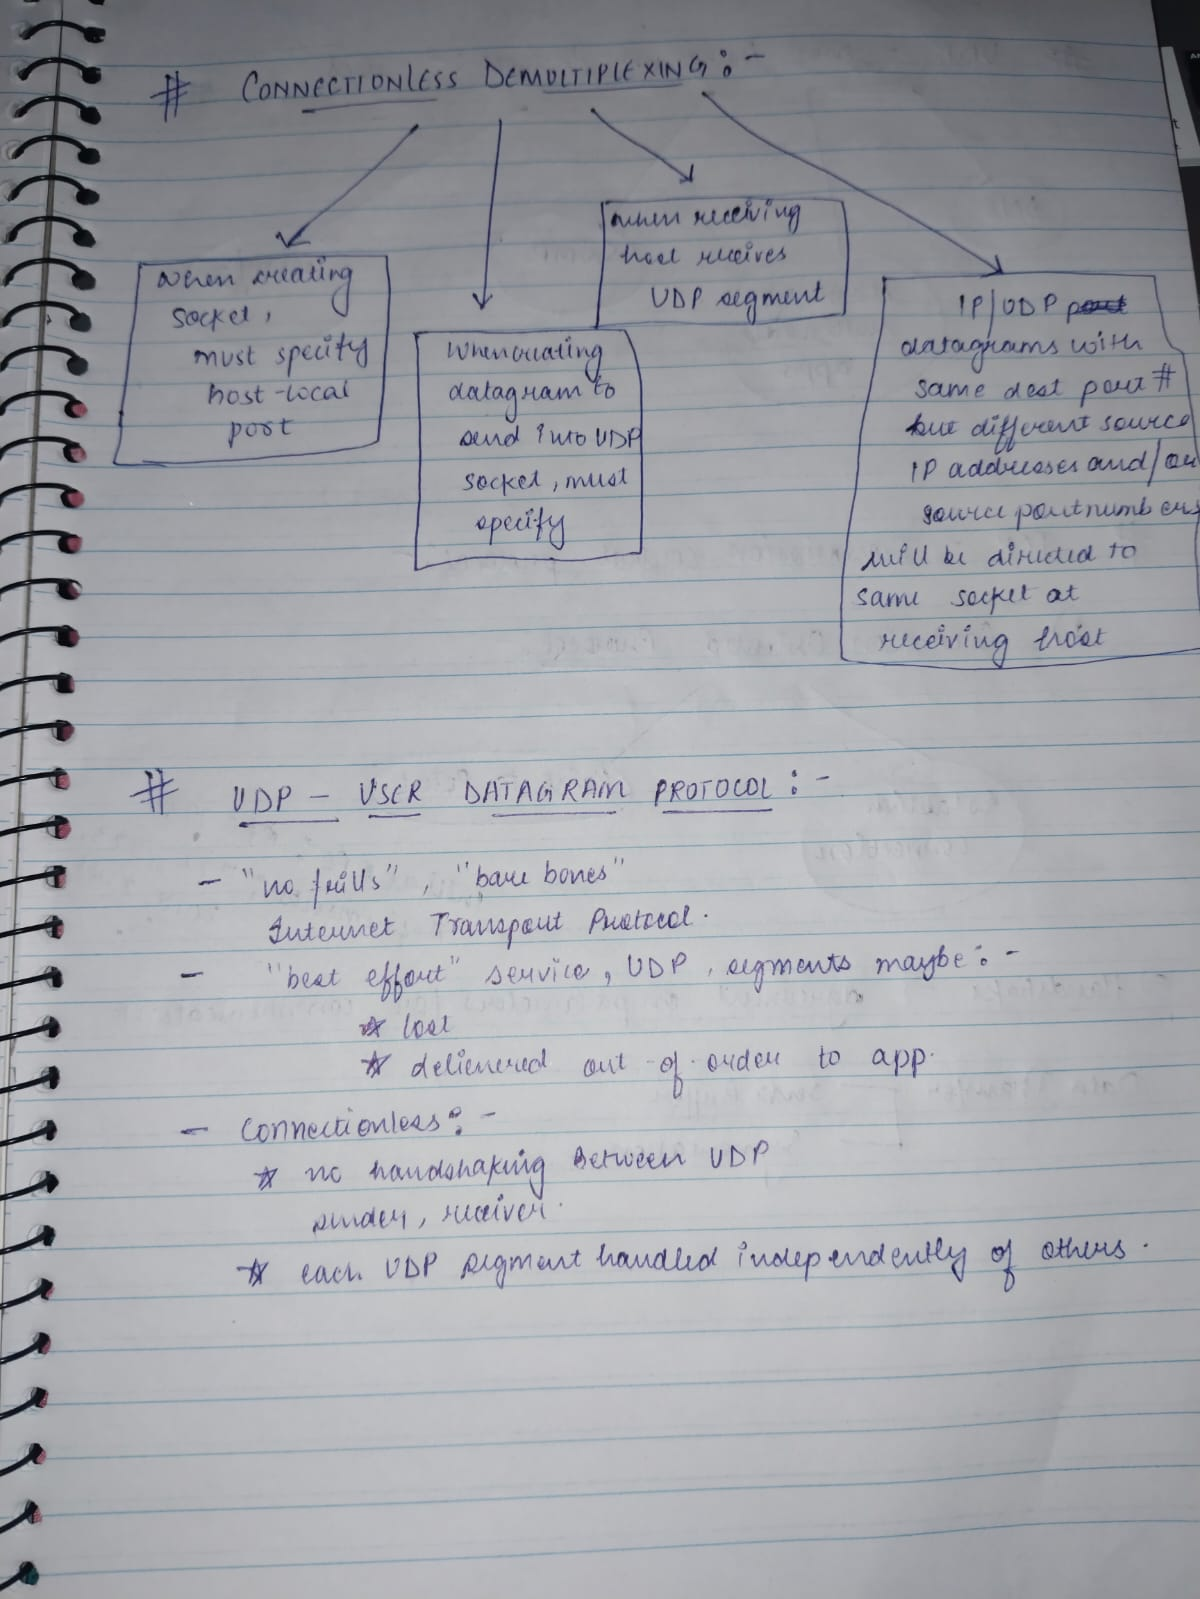 # CONNECTIONLESS DEMULTIPLEXING :-
when creating
socket,
must specify
host-local
port
When creating
datagram to
send into UDP
socket, must
specify
when receiving
host receives
UDP segment
IP/UDP port
datagrams with
same dest port #
but different source
IP addresses and/or
source port numbers
will be directed to
same socket at
receiving host
# UDP - USER DATAGRAM PROTOCOL :-
- "no frills", "bare bones"
Internet Transport Protocol.
- "best effort" service, UDP, segments maybe :-
☆ lost
☆ delievered out-of-order to app.
- Connectionless :-
☆ no handshaking Between UDP
sender, receiver.
☆ each UDP segment handled independently of others.